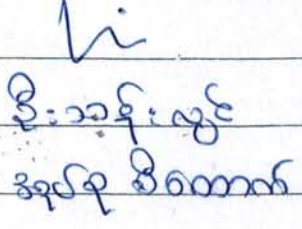 ဦးသန်းလွင်
အုပ်စု မီတောက်